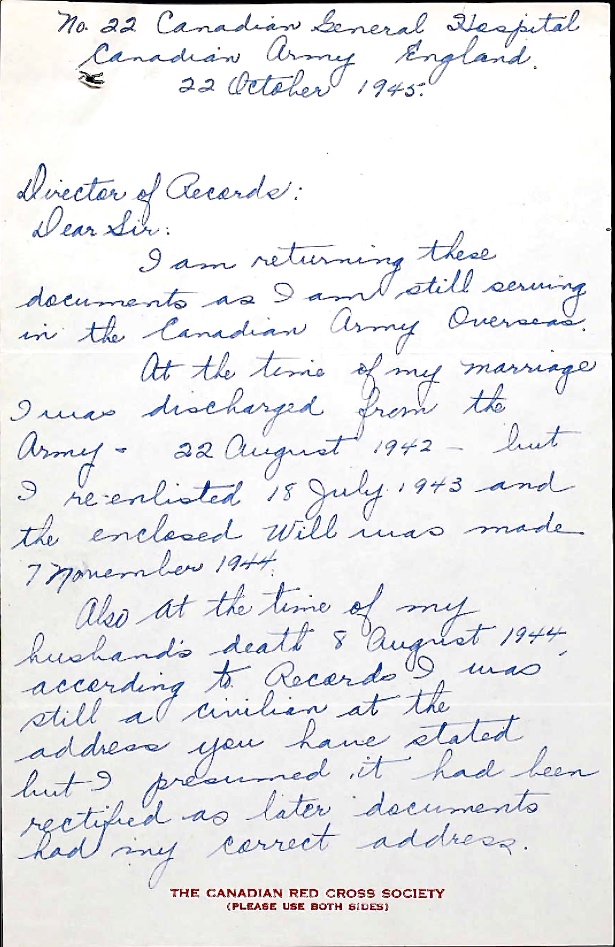 No. 22 Canadian General Hospital
Canadian Army England.
22 October 1945.
Director of Records:
Dear Sir:
I am returning these
documents as I am still serving
in the Canadian Army Overseas.
At the time of my marriage
I was discharged from the
Army - 22 August 1942 - but
I re-enlisted 18 July 1943 and
the enclosed Will was made
7 November 1944.
Also at the time of my
husband's death 8 August 1944,
according to Records I was
still a civilian at the
address you have stated
but I presumed it had been
rectified as later documents
had my correct address.
THE CANADIAN RED CROSS SOCIETY
(PLEASE USE BOTH SIDES)